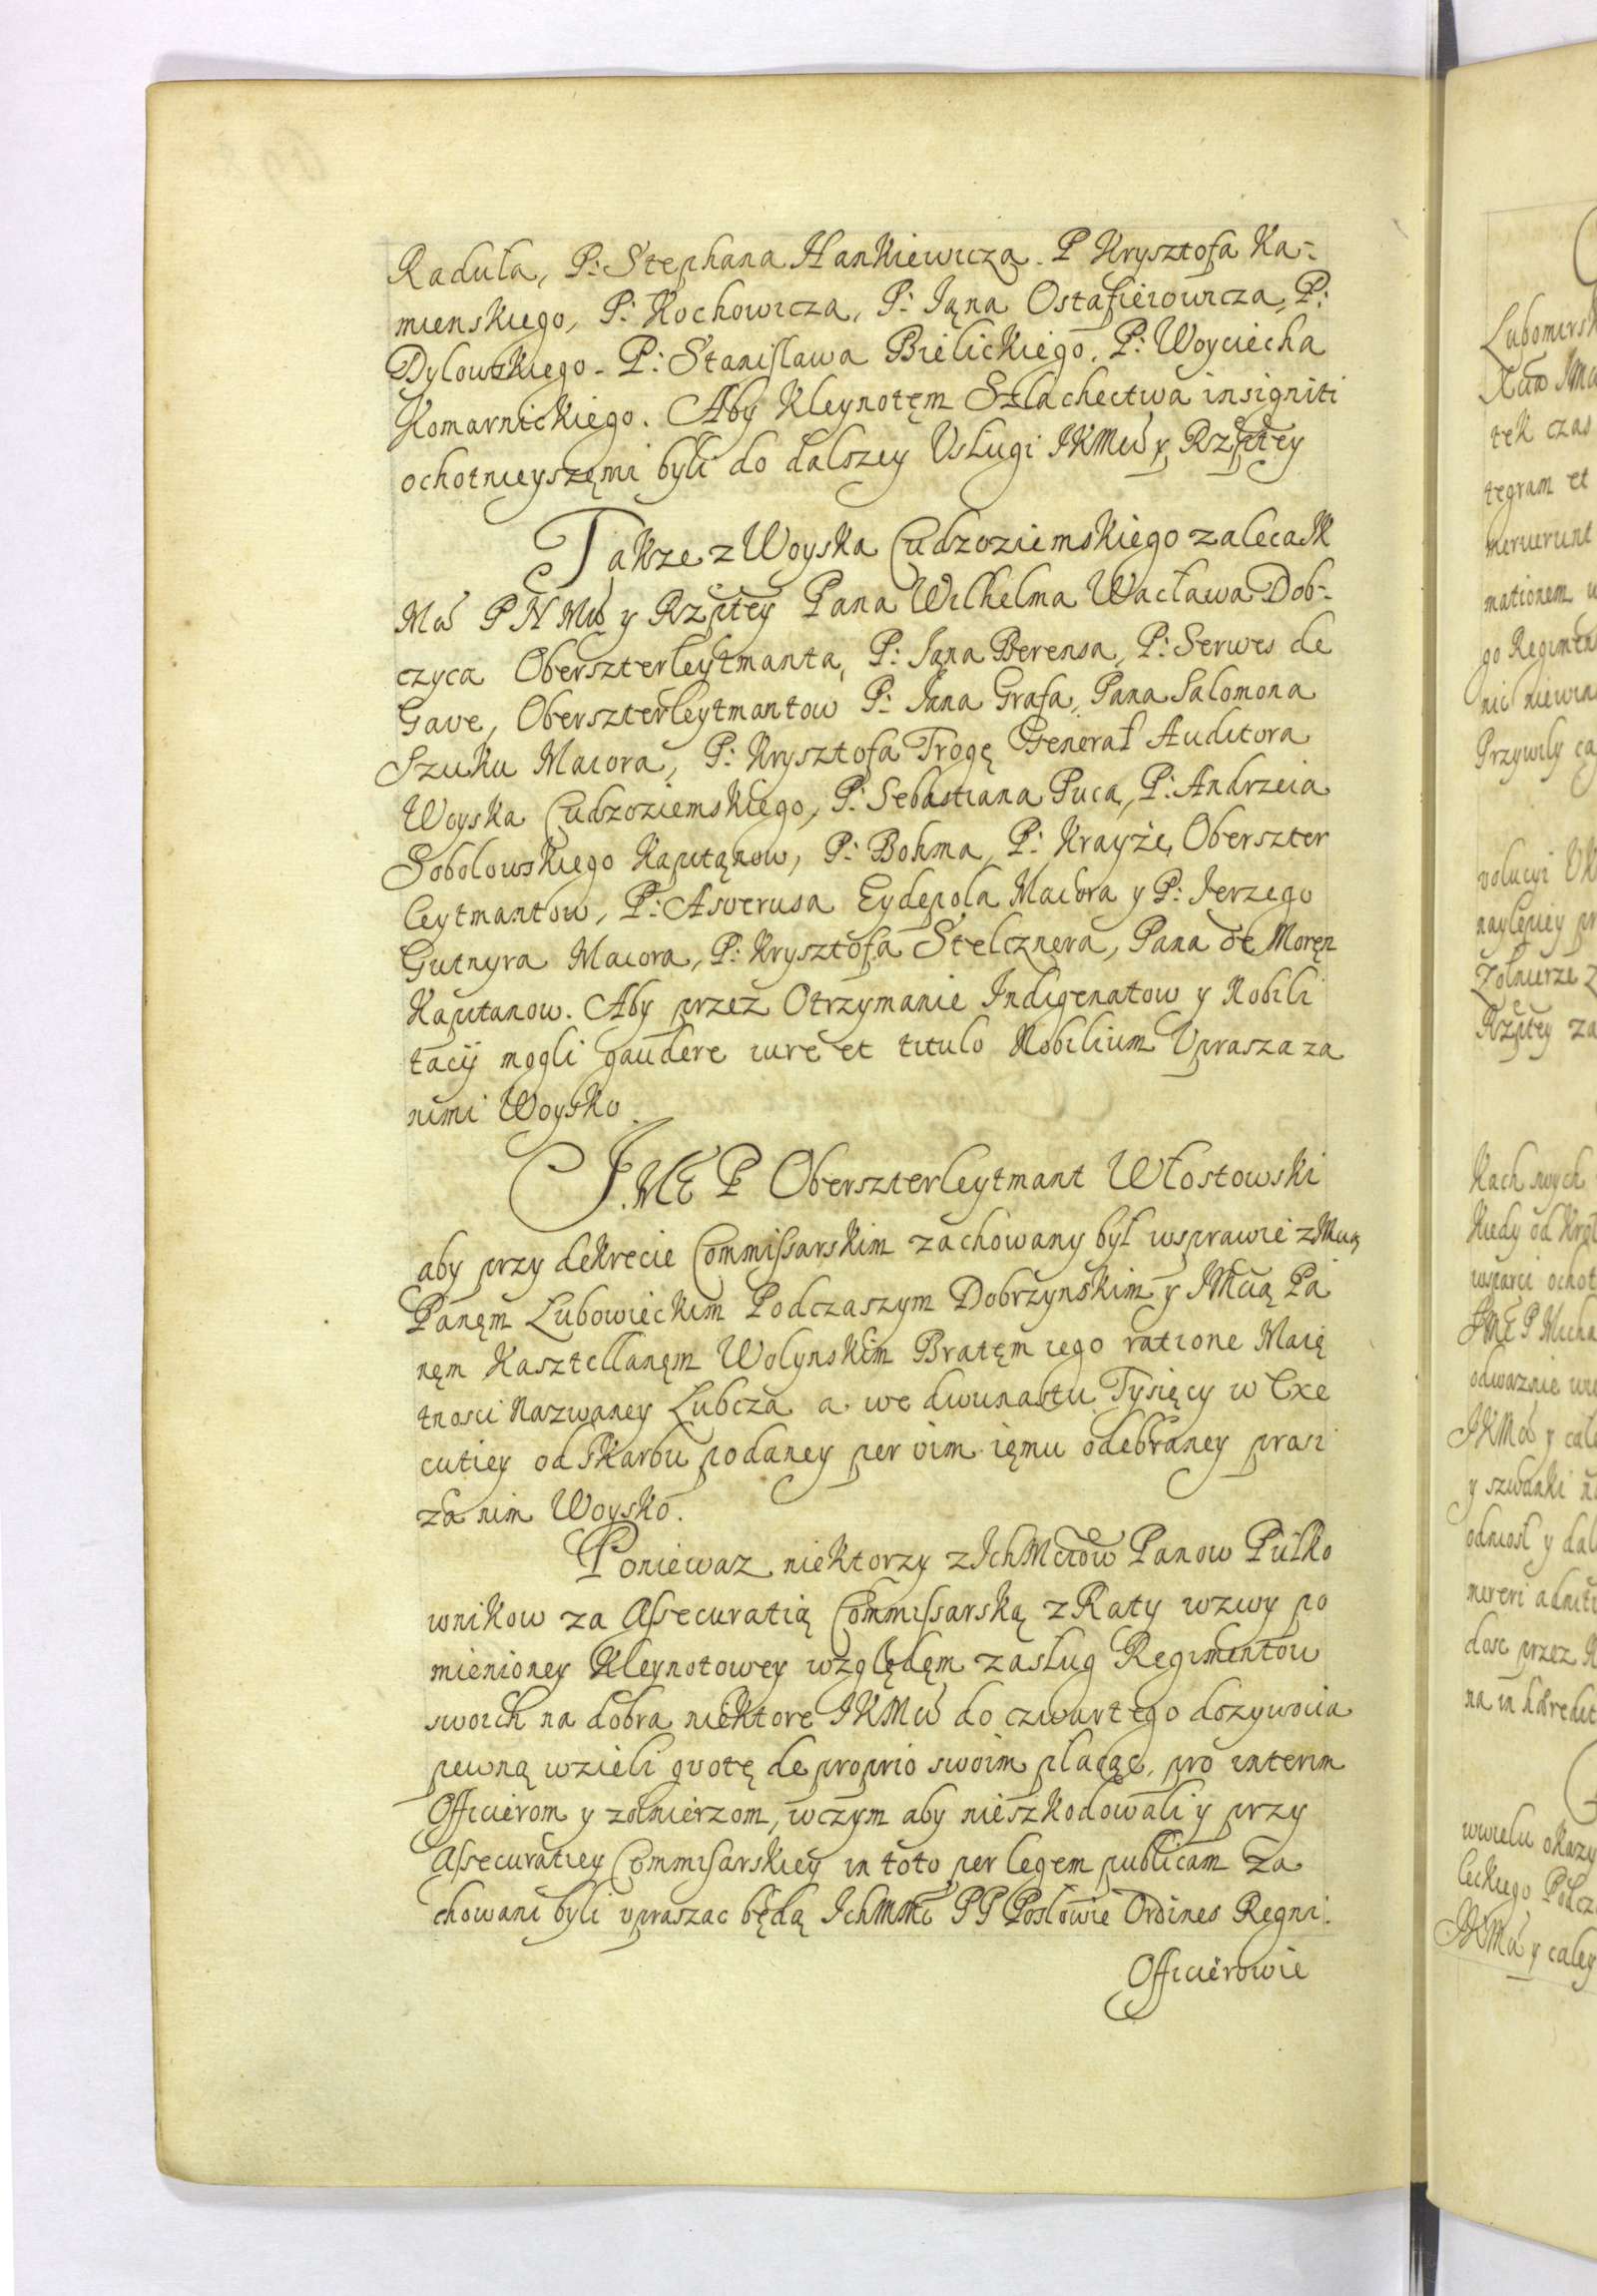 Raduła, P: Stephana Hankiewicza. P Krysztofa Ka-
mienskiego, P: Kochowicza, P: Iąna Ostafieiowicza, P:
Dylowskiego. P: Stanisława Bielickiego. P: Woyciecha
Komarnickiego. Aby Kleynotęm Szlachectwa insigniti
ochotnieyszęmi byli do dalszey Usługi IKMći y Rzptey
Takze z Woyska Cudzoziemskiego zaleca IK
Mći P N Mći y Rzptey Pana Wilhelma Wacława Dob-
czyca Oberszterleytmanta, P: Iąna Berensa, P: Serwes de
Gave, Oberszterleytmantow P: Iana Grafa, Pana Salomona
Szuku Maiora, P: Krysztofa Trogę Generał Auditora
Woyska Cudzoziemskiego, P: Sebastiana Puca, P: Andrzeia
Sobolowskiego Kapitąnow, P: Bohma, P: Krayże, Oberszter
leytmantow, P: Aswerusa Eydepola Maiora y P: Ierzego
Gutnyra Maiora, P: Krysztofa Stelcznera, Pana de Moręn
Kapitanow. Aby przez Otrzymanie Indigenatow y Nobili
tacij mogli gaudere iure et titulo Nobilium Uprasza za
nimi Woysko.
I.ME P Oberszterleytmant Włostowski
aby przy dekrecie Commissarskim zachowany był wsprawie z IMcią
Panęm Lubowieckim Podczaszym Dobrzynskim y IMcią Pa
nęm Kasztellanęm Wolynskim Bratęm iego ratione Maię
tnosci Nazwaney Lubcza a we dwunastu Tysięcy w Exe
cutiey od Skarbu podaney per vim ięmu odebraney prosi
za nim Woysko.
Poniewaz niektorzy z IchMciow Panow Pułko
wnikow za Assecuratią Commissarską z Raty wzwy po
mienioney Kleynotowey względęm zasług Regimentow
swoich na dobra niektore IKMći do czwartego dozywocia
pewną wzieli quotę de proprio swoim płacąc, pro interim
Officierom y zołnierzom, wczym aby nieszkodowali y przy
Assecuratiey Commissarskiey in toto per legem publicam za
chowani byli upraszac będą IchMMći PP Posłowie Ordines Regni.
Officierowie